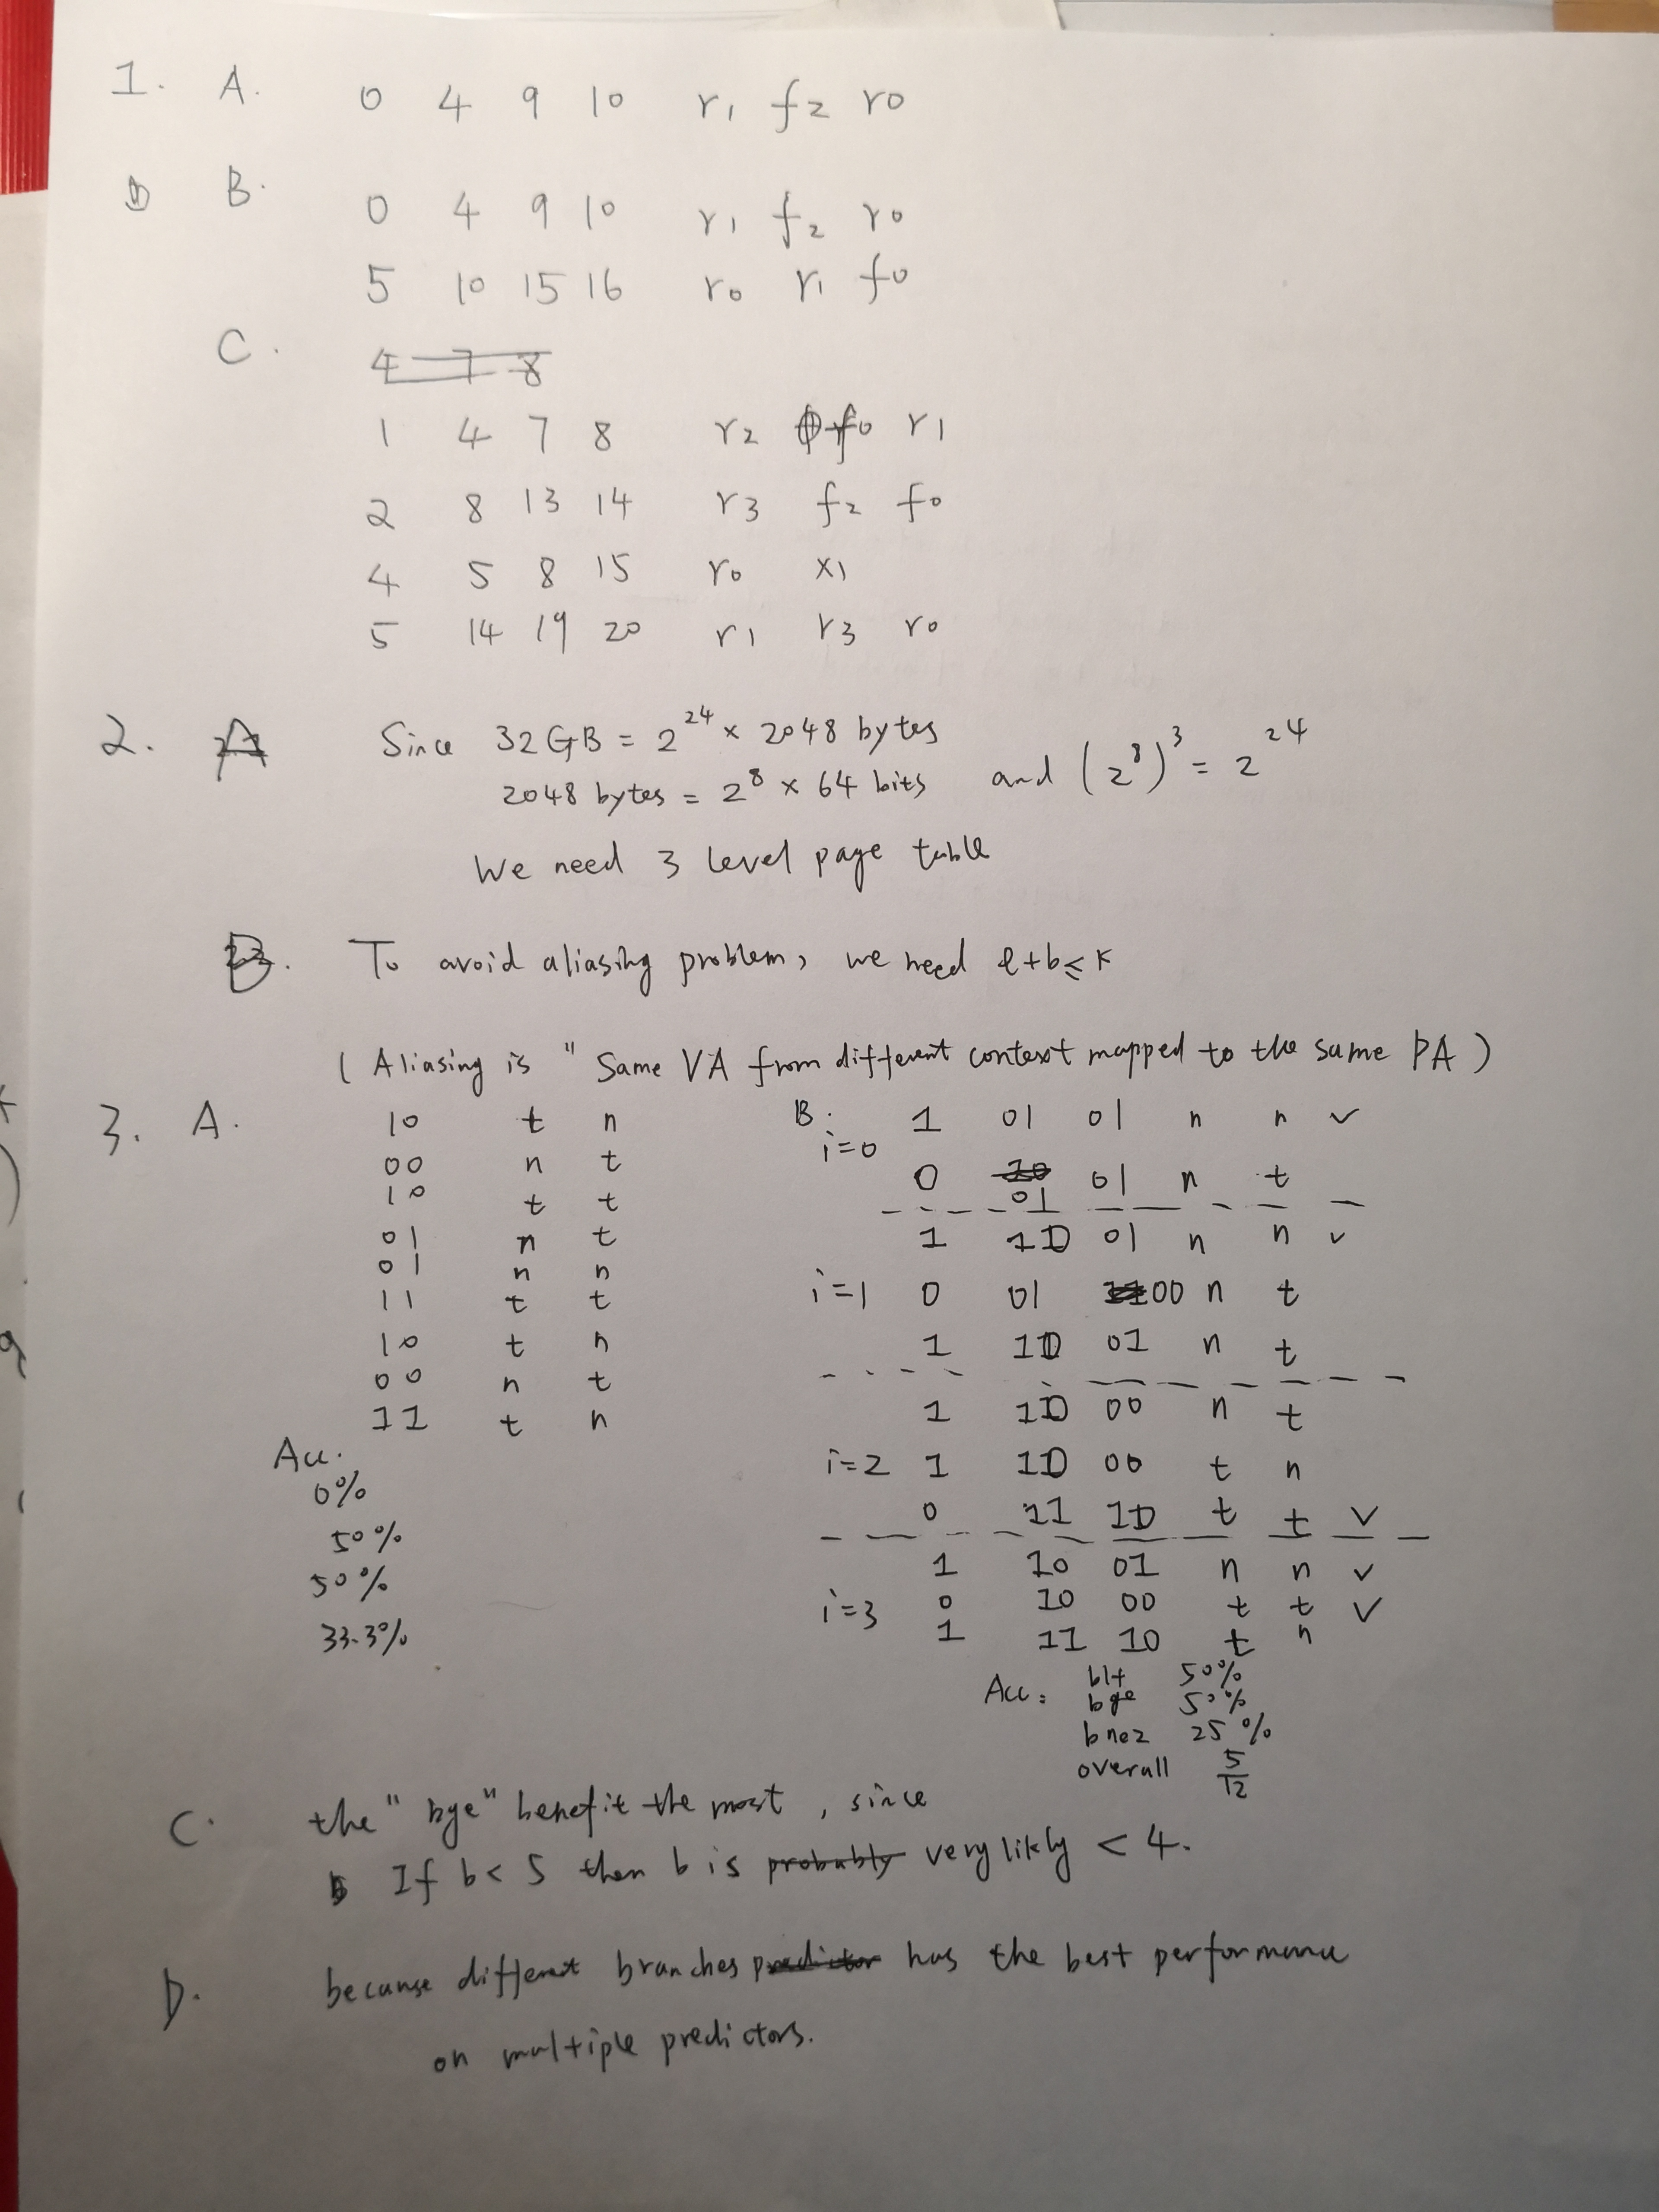 1. A. 0 4 9 10 r1 f2 r0
B. 0 4 9 10 r1 f2 r0
5 10 15 16 r0 r1 f0
C. 4 7 8
1 4 7 8 r2 f0 r1
2 8 13 14 r3 f2 f0
4 5 8 15 r0 x1
5 14 19 20 r1 r3 r0
2. A Since 32GB = 2^24 × 2048 bytes
2048 bytes = 2^8 × 64 bits and (2^8)^3 = 2^24
We need 3 level page table
B. To avoid aliasing problem, we need l+b≤k
(Aliasing is "Same VA from different context mapped to the same PA)
3. A.
10 t n
00 n t
10 t t
01 n t
01 n n
11 t t
10 t n
00 n t
11 t n
Acc.
0%
50%
50%
33.3%
B.
i=0
1 01 01 n n ✓
0 01 01 n t
1 10 01 n n ✓
i=1 0 01 00 n t
1 10 01 n t
1 10 00 n t
i=2 1 10 00 t n
0 11 10 t t ✓
1 10 01 n n ✓
i=3 0 10 00 t t ✓
1 11 10 t n
Acc: blt 50%
bge 50%
bnez 25%
overall 5/12
C. the "bge" benefit the most, since
If b < 5 then b is probably very likly < 4.
D. because different branches predictor has the best performance
on multiple predictors.